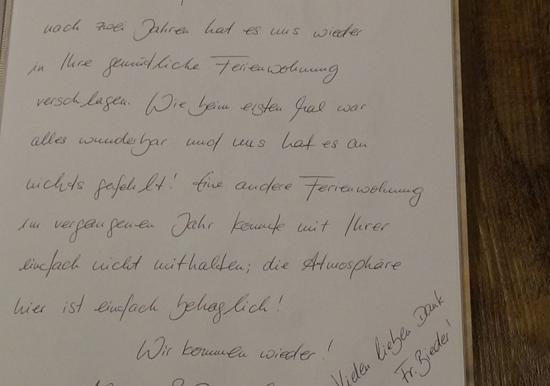 nach zwei Jahren hat es uns wieder
in Ihre gemütliche Ferienwohnung
verschlagen. Wie beim ersten Mal war
alles wunderbar und uns hat es an
nichts gefehlt! Eine andere Ferienwohnung
im vergangenen Jahr konnte mit Ihrer
einfach nicht mithalten; die Atmosphäre
hier ist einfach behaglich!
Wir kommen wieder!
Vielen lieben Dank
Fr. Bieder!